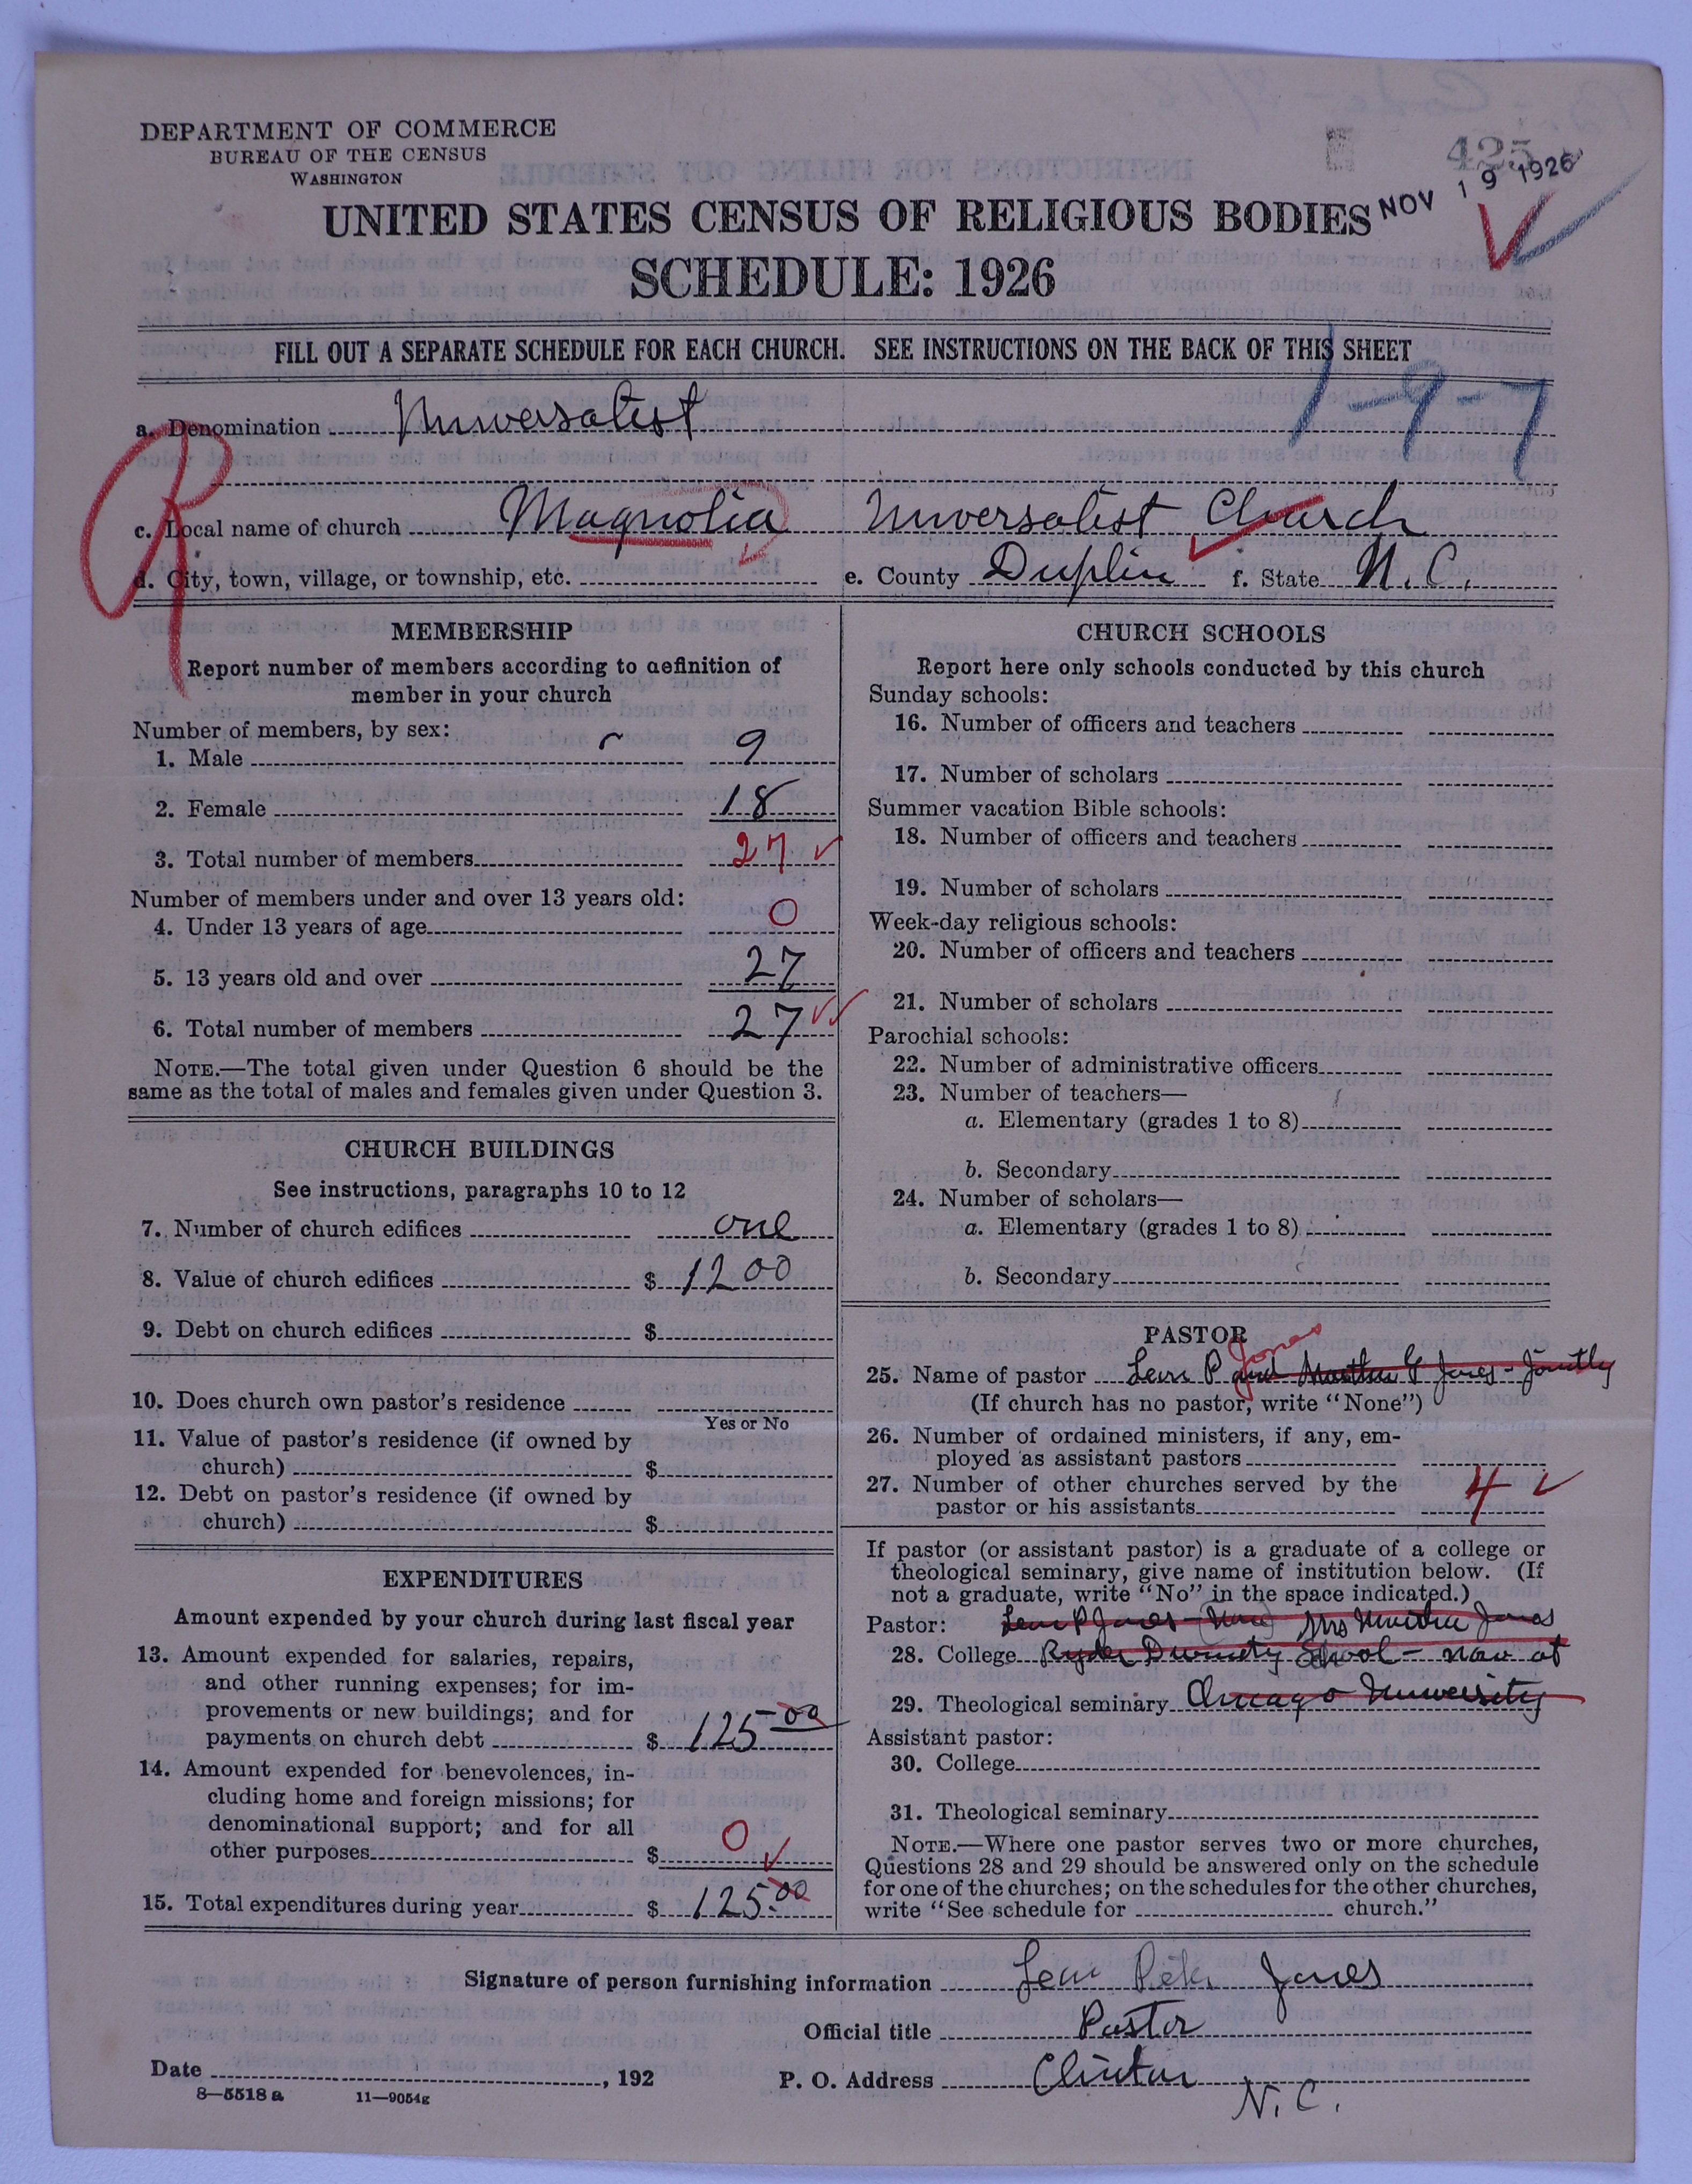 425
NOV 19 1926
DEPARTMENT OF COMMERCE
BUREAU OF THE CENSUS
WASHINGTON
UNITED STATES CENSUS OF RELIGIOUS BODIES
SCHEDULE: 1926
FILL OUT A SEPARATE SCHEDULE FOR EACH CHURCH. SEE INSTRUCTIONS ON THE BACK OF THIS SHEET
1-9-7
a. Denomination Universalist
R
c. Local name of church Magnolia Universalist Church
d. City, town, village, or township, etc. e. County Duplin f. State N.C.
MEMBERSHIP
Report number of members according to definition of
member in your church
Number of members, by sex:
1. Male 9
2. Female 18
3. Total number of members 27
Number of members under and over 13 years old:
4. Under 13 years of age 0
5. 13 years old and over 27
6. Total number of members 27
NOTE.—The total given under Question 6 should be the
same as the total of males and females given under Question 3.
CHURCH BUILDINGS
See instructions, paragraphs 10 to 12
7. Number of church edifices one
8. Value of church edifices $ 1200
9. Debt on church edifices $
10. Does church own pastor's residence
Yes or No
11. Value of pastor's residence (if owned by
church) $
12. Debt on pastor's residence (if owned by
church) $
EXPENDITURES
Amount expended by your church during last fiscal year
13. Amount expended for salaries, repairs,
and other running expenses; for im-
provements or new buildings; and for
payments on church debt $ 125.00
14. Amount expended for benevolences, in-
cluding home and foreign missions; for
denominational support; and for all
other purposes $ 0
15. Total expenditures during year $ 125.00
CHURCH SCHOOLS
Report here only schools conducted by this church
Sunday schools:
16. Number of officers and teachers
17. Number of scholars
Summer vacation Bible schools:
18. Number of officers and teachers
19. Number of scholars
Week-day religious schools:
20. Number of officers and teachers
21. Number of scholars
Parochial schools:
22. Number of administrative officers
23. Number of teachers—
a. Elementary (grades 1 to 8)
b. Secondary
24. Number of scholars—
a. Elementary (grades 1 to 8)
b. Secondary
PASTOR
Jones
25. Name of pastor Levi P and Martha G Jones - Jointly
(If church has no pastor, write "None")
26. Number of ordained ministers, if any, em-
ployed as assistant pastors
27. Number of other churches served by the
pastor or his assistants 4
If pastor (or assistant pastor) is a graduate of a college or
theological seminary, give name of institution below. (If
not a graduate, write "No" in the space indicated.)
Pastor: Levi P Jones - Mrs Martha Jones
28. College Ryder Divinity School - now at
29. Theological seminary Chicago University
Assistant pastor:
30. College
31. Theological seminary
NOTE.—Where one pastor serves two or more churches,
Questions 28 and 29 should be answered only on the schedule
for one of the churches; on the schedules for the other churches,
write "See schedule for church."
Signature of person furnishing information Levi Jones
Official title Pastor
Date , 192 P. O. Address Clinton
N.C.
8—5518 a 11—9054g